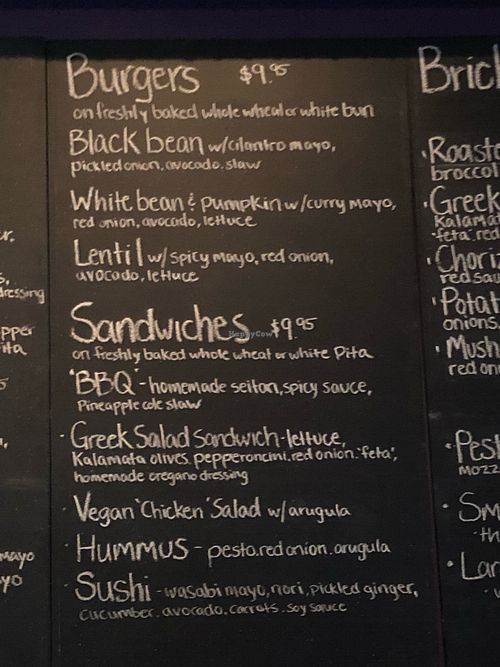 Burgers $9.95
on freshly baked whole wheat or white bun
Black bean w/cilantro mayo,
pickled onion, avocado, slaw
White bean & pumpkin w/curry mayo,
red onion, avocado, lettuce
Lentil w/ spicy mayo, red onion,
avocado, lettuce
Sandwiches $9.95
on freshly baked whole wheat or white Pita
"BBQ" - homemade seitan, spicy sauce,
Pineapple cole slaw
· Greek Salad Sandwich - lettuce,
Kalamata olives, pepperoncini, red onion, 'feta',
homemade oregano dressing
· Vegan 'Chicken' Salad w/ arugula
· Hummus - pesto, red onion, arugula
· Sushi - wasabi mayo, nori, pickled ginger,
cucumber, avocado, carrots, soy sauce
HappyCow
dressing
mayo
Bric
· Roaste
broccol
· Greek
Kalama
'feta', red
· Choriz
red sau
· Potat
onions
· Mush
red oni
· Pest
mozz
· Sm
th
· Lar